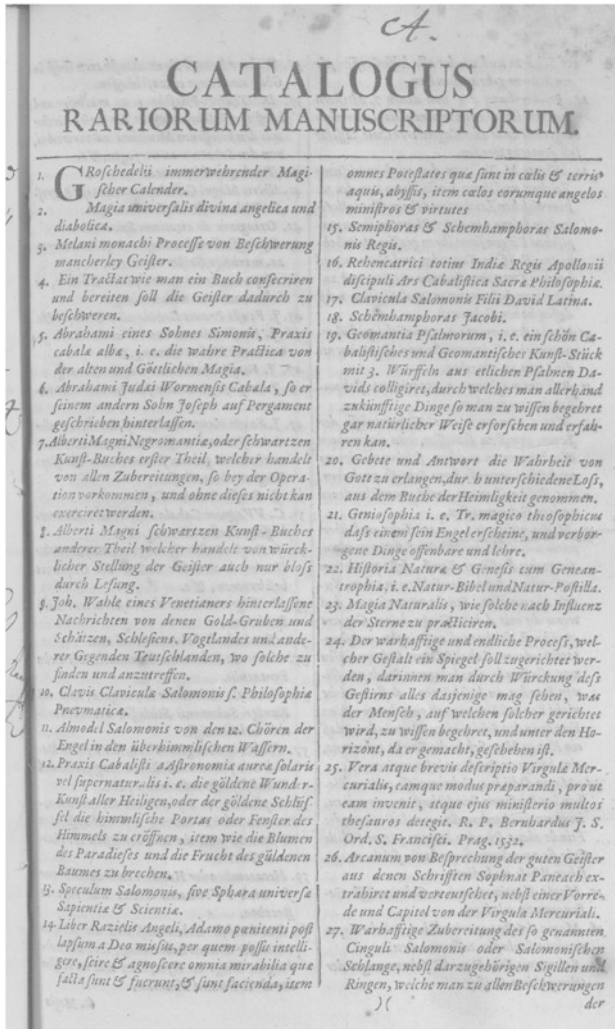 A.
CATALOGUS
RARIORUM MANUSCRIPTORUM.
1. GRoschedelii immerwehrender Magi-
scher Calender.
2. Magia universalis divina angelica und
diabolica.
3. Melani monachi Processe von Beschwerung
mancherley Geister.
4. Ein Tractat wie man ein Buch consecriren
und bereiten soll die Geister dadurch zu
beschweren.
5. Abrahami eines Sohnes Simonis, Praxis
cabalæ albæ, i. e. die wahre Practica von
der alten und Göttlichen Magia.
6. Abrahami Judæi Wormensis Cabala, so er
seinem andern Sohn Joseph auf Pergament
geschrieben hinterlassen.
7. Alberti Magni Negromantiæ, oder schwartzen
Kunst-Buches erster Theil, welcher handelt
von allen Zubereitungen, so bey der Opera-
tion vorkommen, und ohne dieses nicht kan
exerciret werden.
8. Alberti Magni schwartzen Kunst-Buches
anderer Theil welcher handelt von würck-
licher Stellung der Geister auch nur bloss
durch Lesung.
9. Joh. Wahle eines Venetianers hinterlassene
Nachrichten von denen Gold-Gruben und
Schätzen, Schlesiens, Vogtlandes und ande-
rer Gegenden Teutschlanden, wo solche zu
finden und anzutreffen.
10. Clavis Claviculæ Salomonis s. Philosophiæ
Pnevmaticæ.
11. Almodel Salomonis von den 12. Chören der
Engel in den überhimmlischen Wassern.
12. Praxis Cabalisti a Astronomia aurea solaris
vel supernaturalis i. e. die göldene Wunder-
Kunst aller Heiligen, oder der göldne Schlüs-
sel die himmlische Portas oder Fenster des
Himmels zu eröffnen, item wie die Blumen
des Paradieses und die Frucht des güldenen
Baumes zu brechen.
13. Speculum Salomonis, sive Sphæra universæ
Sapientiæ & Scientiæ.
14. Liber Razielis Angeli, Adamo pœnitenti post
lapsum a Deo missus, per quem possit intelli-
gere, scire & agnoscere omnia mirabilia quæ
facta sunt & fuerunt, & sunt facienda, item
omnes Potestates quæ sunt in cœlis & terris
aquis, abyssis, item cœlos eorumque angelos
ministros & virtutes
15. Semiphoras & Schemhamphoras Salomo-
nis Regis.
16. Rehencatrici totius Indiæ Regis Apollonii
discipuli Ars Cabalistica Sacræ Philosophiæ.
17. Clavicula Salomonis Filii David Latina.
18. Schemhamphoras Jacobi.
19. Geomantia Psalmorum, i. e. ein schön Ca-
balistisches und Geomantisches Kunst-Stück
mit 3. Würffeln aus etlichen Psalmen Da-
vids colligiret, durch welches man allerhand
zukünfftige Dinge so man zu wissen begehret
gar natürlicher Weise erforschen und erfah-
ren kan.
20. Gebete und Antwort die Wahrheit von
Gott zu erlangen, dur h unterschiedene Loss,
aus dem Buche der Heimligkeit genommen.
21. Geniosophia i. e. Tr. magico theosophicus
dass einem sein Engel erscheine, und verbor-
gene Dinge offenbare und lehre.
22. Historia Naturæ & Genesis cum Genean-
trophia, i. e. Natur-Bibel und Natur-Postilla.
23. Magia Naturalis, wie solche nach Influenz
der Sterne zu practiciren.
24. Der warhafftige und endliche Process, wel-
cher Gestalt ein Spiegel soll zugerichtet wer-
den, darinnen man durch Würckung dess
Gestirns alles dasjenige mag sehen, was
der Mensch, auf welchen solcher gerichtet
wird, zu wissen begehret, und unter den Ho-
rizont, da er gemacht, geschehen ist.
25. Vera atque brevis descriptio Virgulæ Mer-
curialis, eamque modus præparandi, prout
eam invenit, atque ejus ministerio multos
thesauros detegit. R. P. Bernhardus J. S.
Ord. S. Francisci. Prag. 1532.
26. Arcanum von Besprechung der guten Geister
aus denen Schrifften Sophnat Paneach ex-
trahiret und verteutschet, nebst einer Vorre-
de und Capitel von der Virgula Mercuriali.
27. Warhafftige Zubereitung des so genannten
Cinguli Salomonis oder Salomonischen
Schlange, nebst darzugehörigen Sigillen und
Ringen, welche man zu allen Beschwerungen
)( der